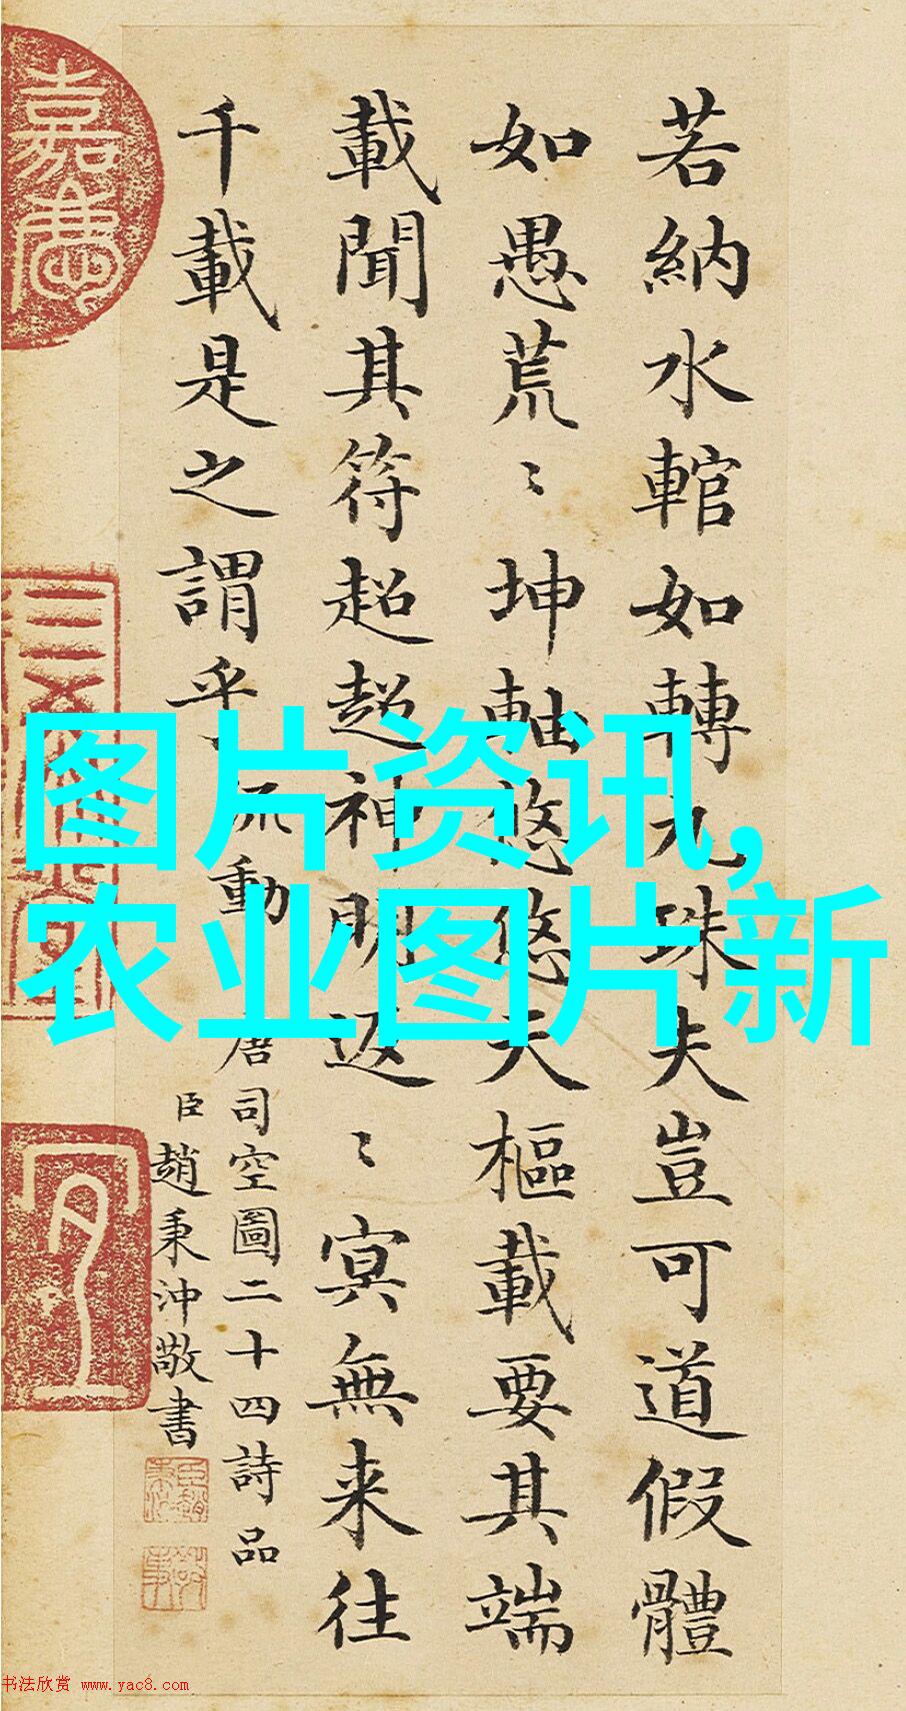 若納水輨如轉丸珠夫豈可道假體
如愚荒〻坤軸悠悠天樞載要其端
載聞其符超超神明返〻冥無来往
千載是之謂乎 流動
唐司空圖二十四詩品
臣趙秉沖敬書
嘉慶
图片资讯,
农业图片新
书法欣赏 www.yac8.com